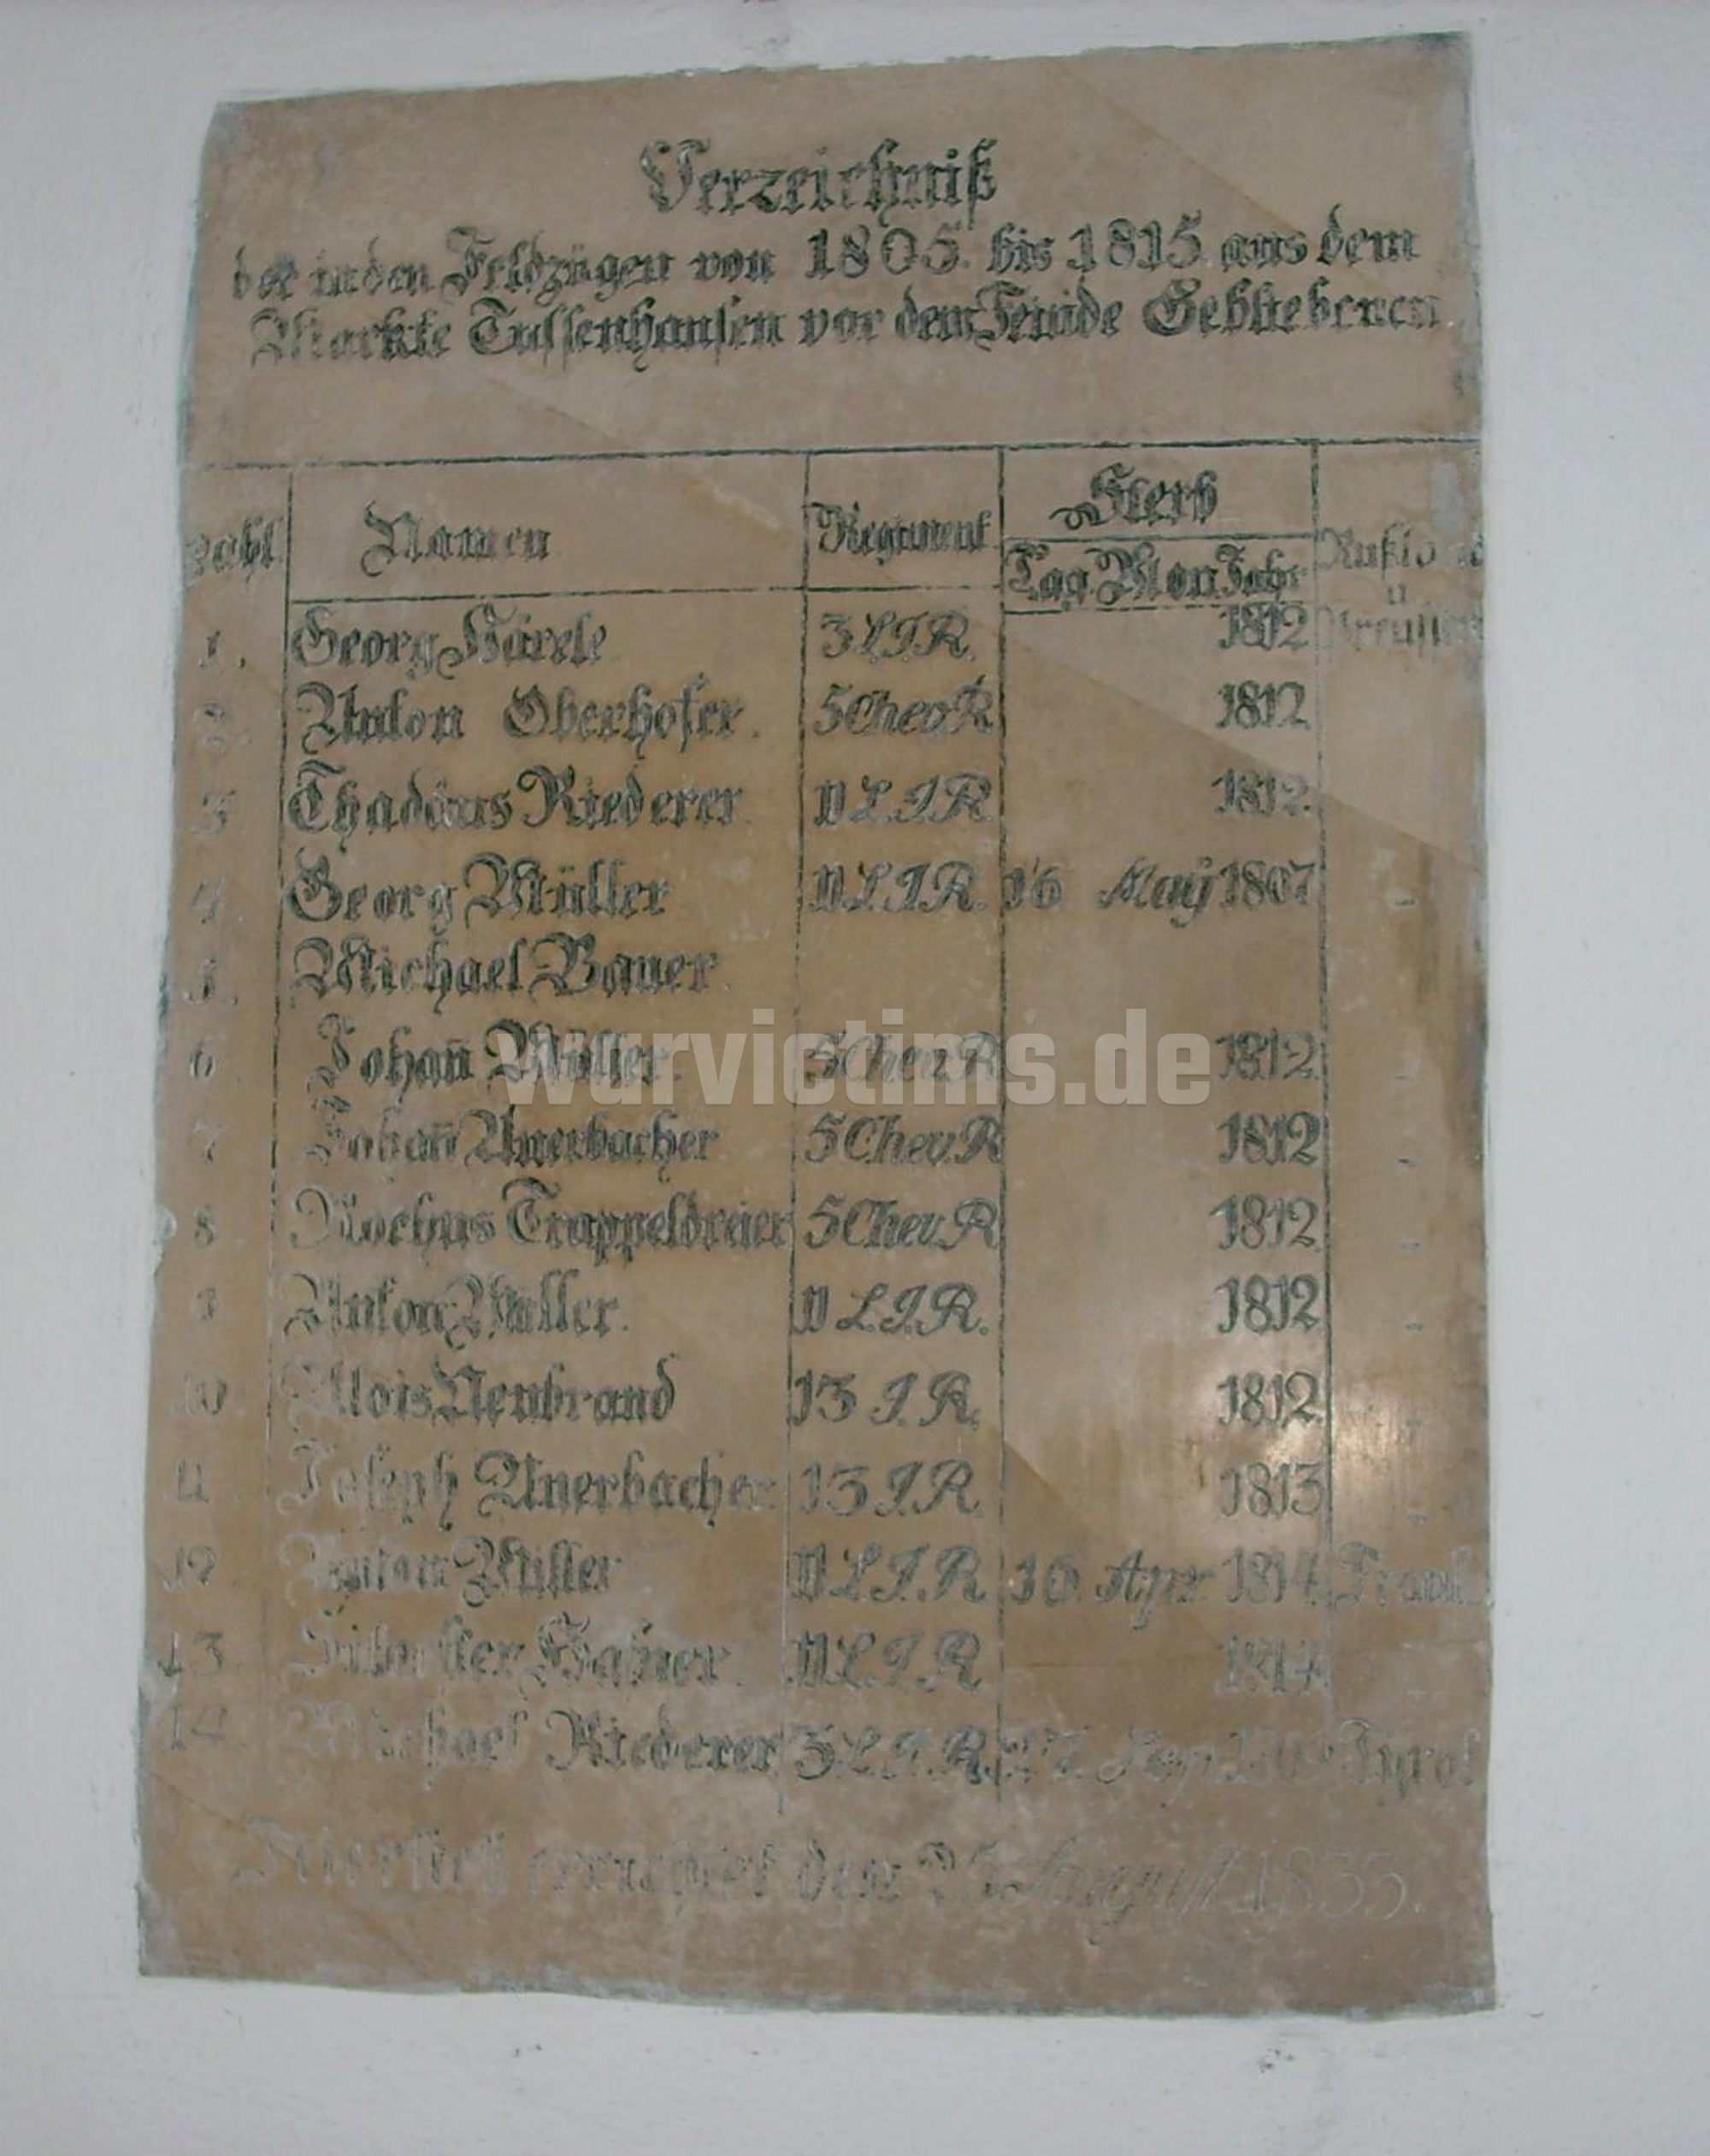 Verzeichniß
der in den Feldzügen von 1805. bis 1815. aus dem
Markte Tussenhausen vor dem Feinde Gebliebenen
Zahl. Namen Regiment Sterb
Tag. Mon. Jahr Rußland
u
1. Georg Härele 3 L.I.R. 1812 Preußen
2. Anton Oberhofer. 5 Chev.R 1812
3 Thadäus Riederer 11 L.I.R. 1812.
4. Georg Müller 11 L.I.R. 16 Maÿ 1807 -
5. Michael Bauer.
6. Johan̄ Müller. 5 Chev.R 1812. -
7 Johan̄ Auerbacher 5 Chev.R 1812 -
8 Rochus Trappeldreier 5 Chev.R 1812 -
9 Anton Müller. 11 L.I.R. 1812 -
10 Alois Neubrand 13 I.R. 1812. -
11 Joseph Auerbacher 13 I.R. 1813 -
12. Anton Müller 11 L.I.R 16. Apr. 1814 Frank
13 11 L.I.R 1814 -
14. Michael Riederer 3 L.I.R. 27. Sep. Tyrol
errichtet den 25 August 1833.
warvictims.de